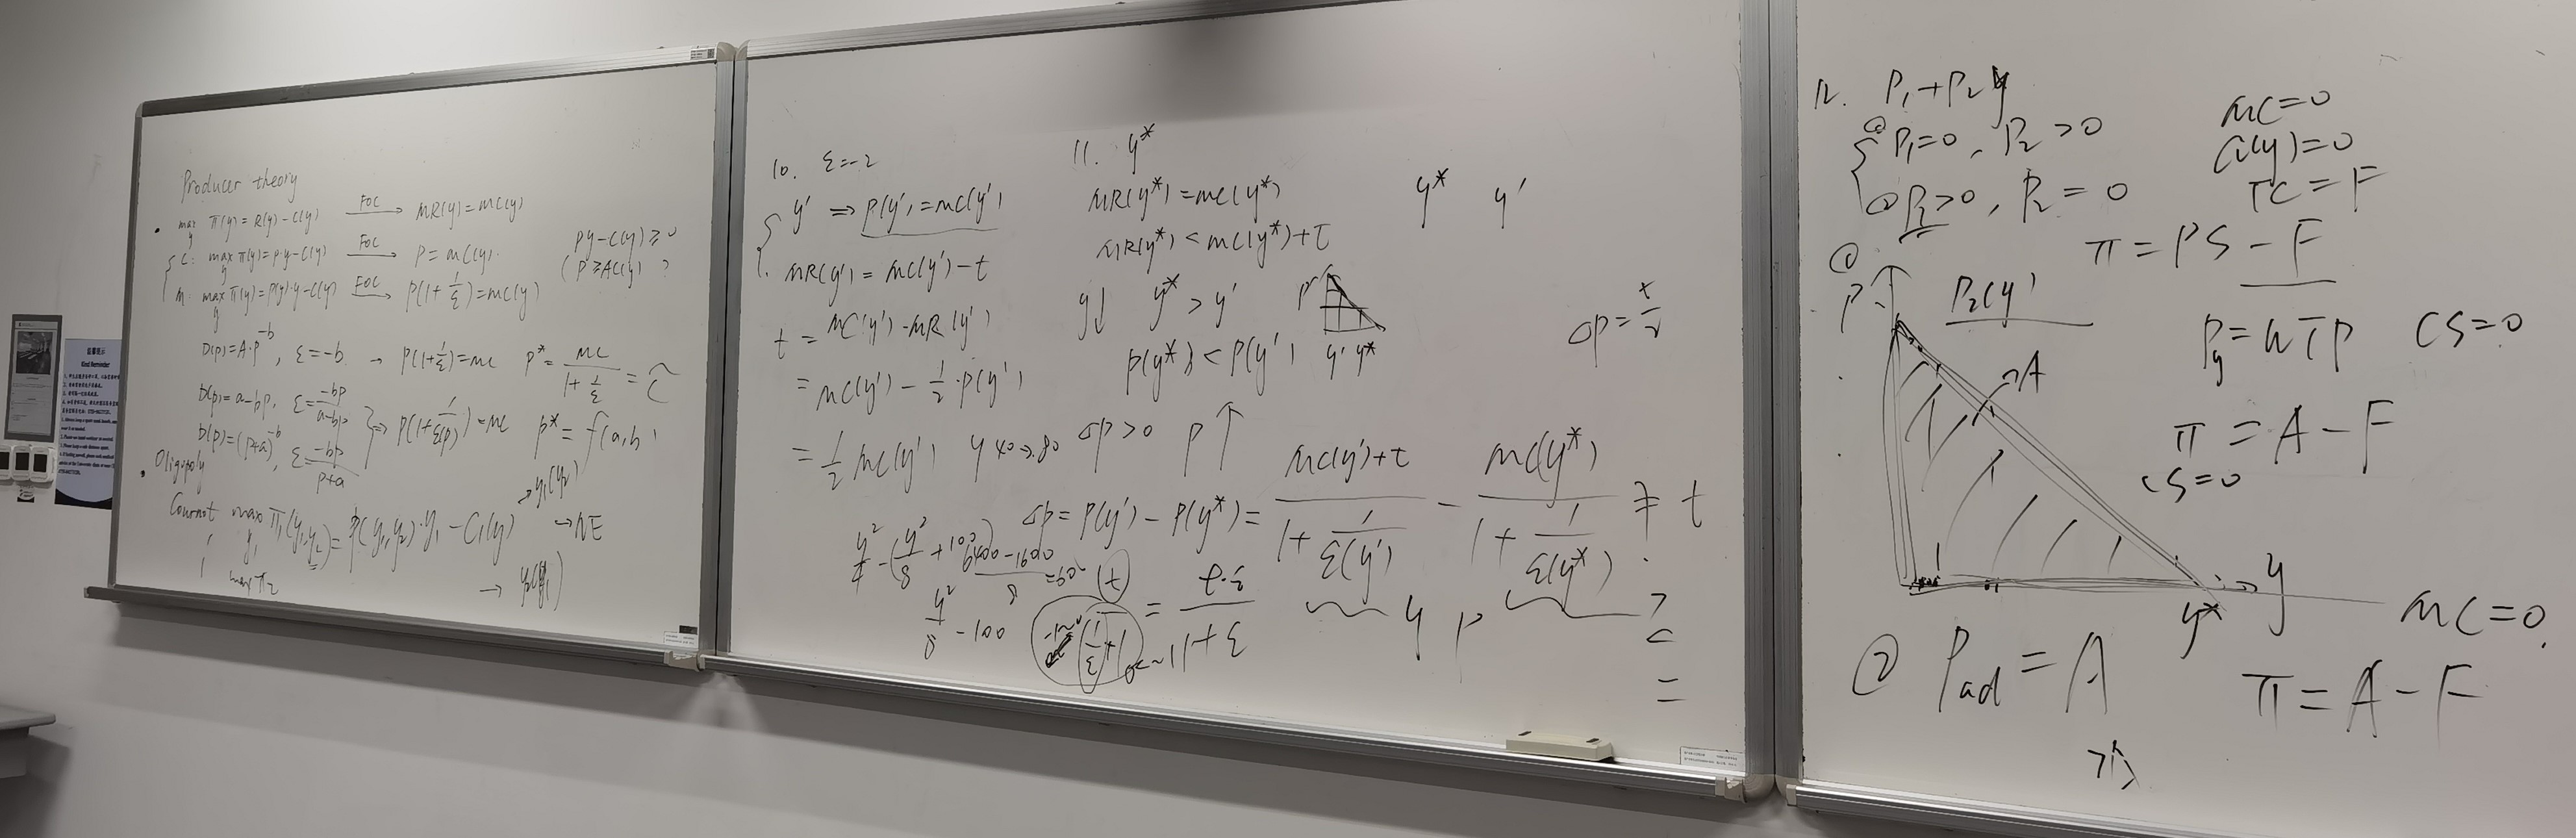 Producer theory
• max π(y) = R(y) - C(y) FOC → MR(y) = MC(y)
y
C: max π(y) = p·y - C(y) FOC → P = MC(y).
y
PY - C(y) ≥ 0
(P ≥ AC(y) ?
M: max π(y) = P(y)·y - C(y) FOC → P(1 + 1/ε) = MC(y)
y
D(p) = A·P^-b, ε = -b → P(1 + 1/ε) = MC P* = MC / (1 + 1/ε) = C̃
D(p) = a - bp, ε = -bp / (a - bp)
⇒ P(1 + 1/ε(p)) = MC P* = f(a,b)
D(p) = (p+a)^-b, ε = -bp / (p+a)
• Oligopoly
Cournot max π₁(y₁,y₂) = P(y₁,y₂)·y₁ - C₁(y) → y₁(y₂)
y₁
→ NE
max π₂ → y₂(y₁)
10. ε = -2
y' ⇒ P(y') = MC(y')
MR(y') = MC(y') - t
t = MC(y') - MR(y')
= MC(y') - 1/2·P(y')
= 1/2 MC(y')
y 40→80
y²/4 - (y²/8 + 100)
(6400 - 1600) / 8 = 600
y²/8 - 100
11. y*
MR(y*) = MC(y*)
MR(y*) < MC(y*) + t
y↓ y* > y'
P
y' y*
P(y*) < P(y')
ΔP > 0 P↑
ΔP = P(y') - P(y*) = (MC(y') + t) / (1 + 1/ε(y')) - MC(y*) / (1 + 1/ε(y*)) ≠ t
?
(t) / (1/ε + 1) = t·ε / (1 + ε)
0~1
y P
>
<
=
y* y'
ΔP = t/2
12. P₁ + P₂y
① P₁ = 0, P₂ > 0
② P₁ > 0, P₂ = 0
MC = 0
C(y) = 0
TC = F
π = PS - F
①
P
P₂(y)
A
y*
y
MC = 0
Py = WTP CS = 0
π = A - F
CS = 0
② Pad = A
π = A - F
个